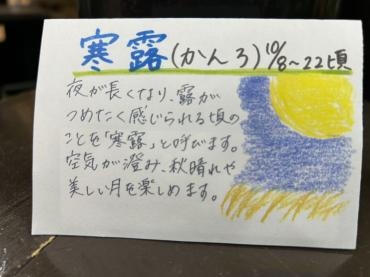 寒露(かんろ)10/8~22頃
夜が長くなり、露が
つめたく感じられる頃の
ことを「寒露」と呼びます。
空気が澄み、秋晴れや
美しい月を楽しめます。